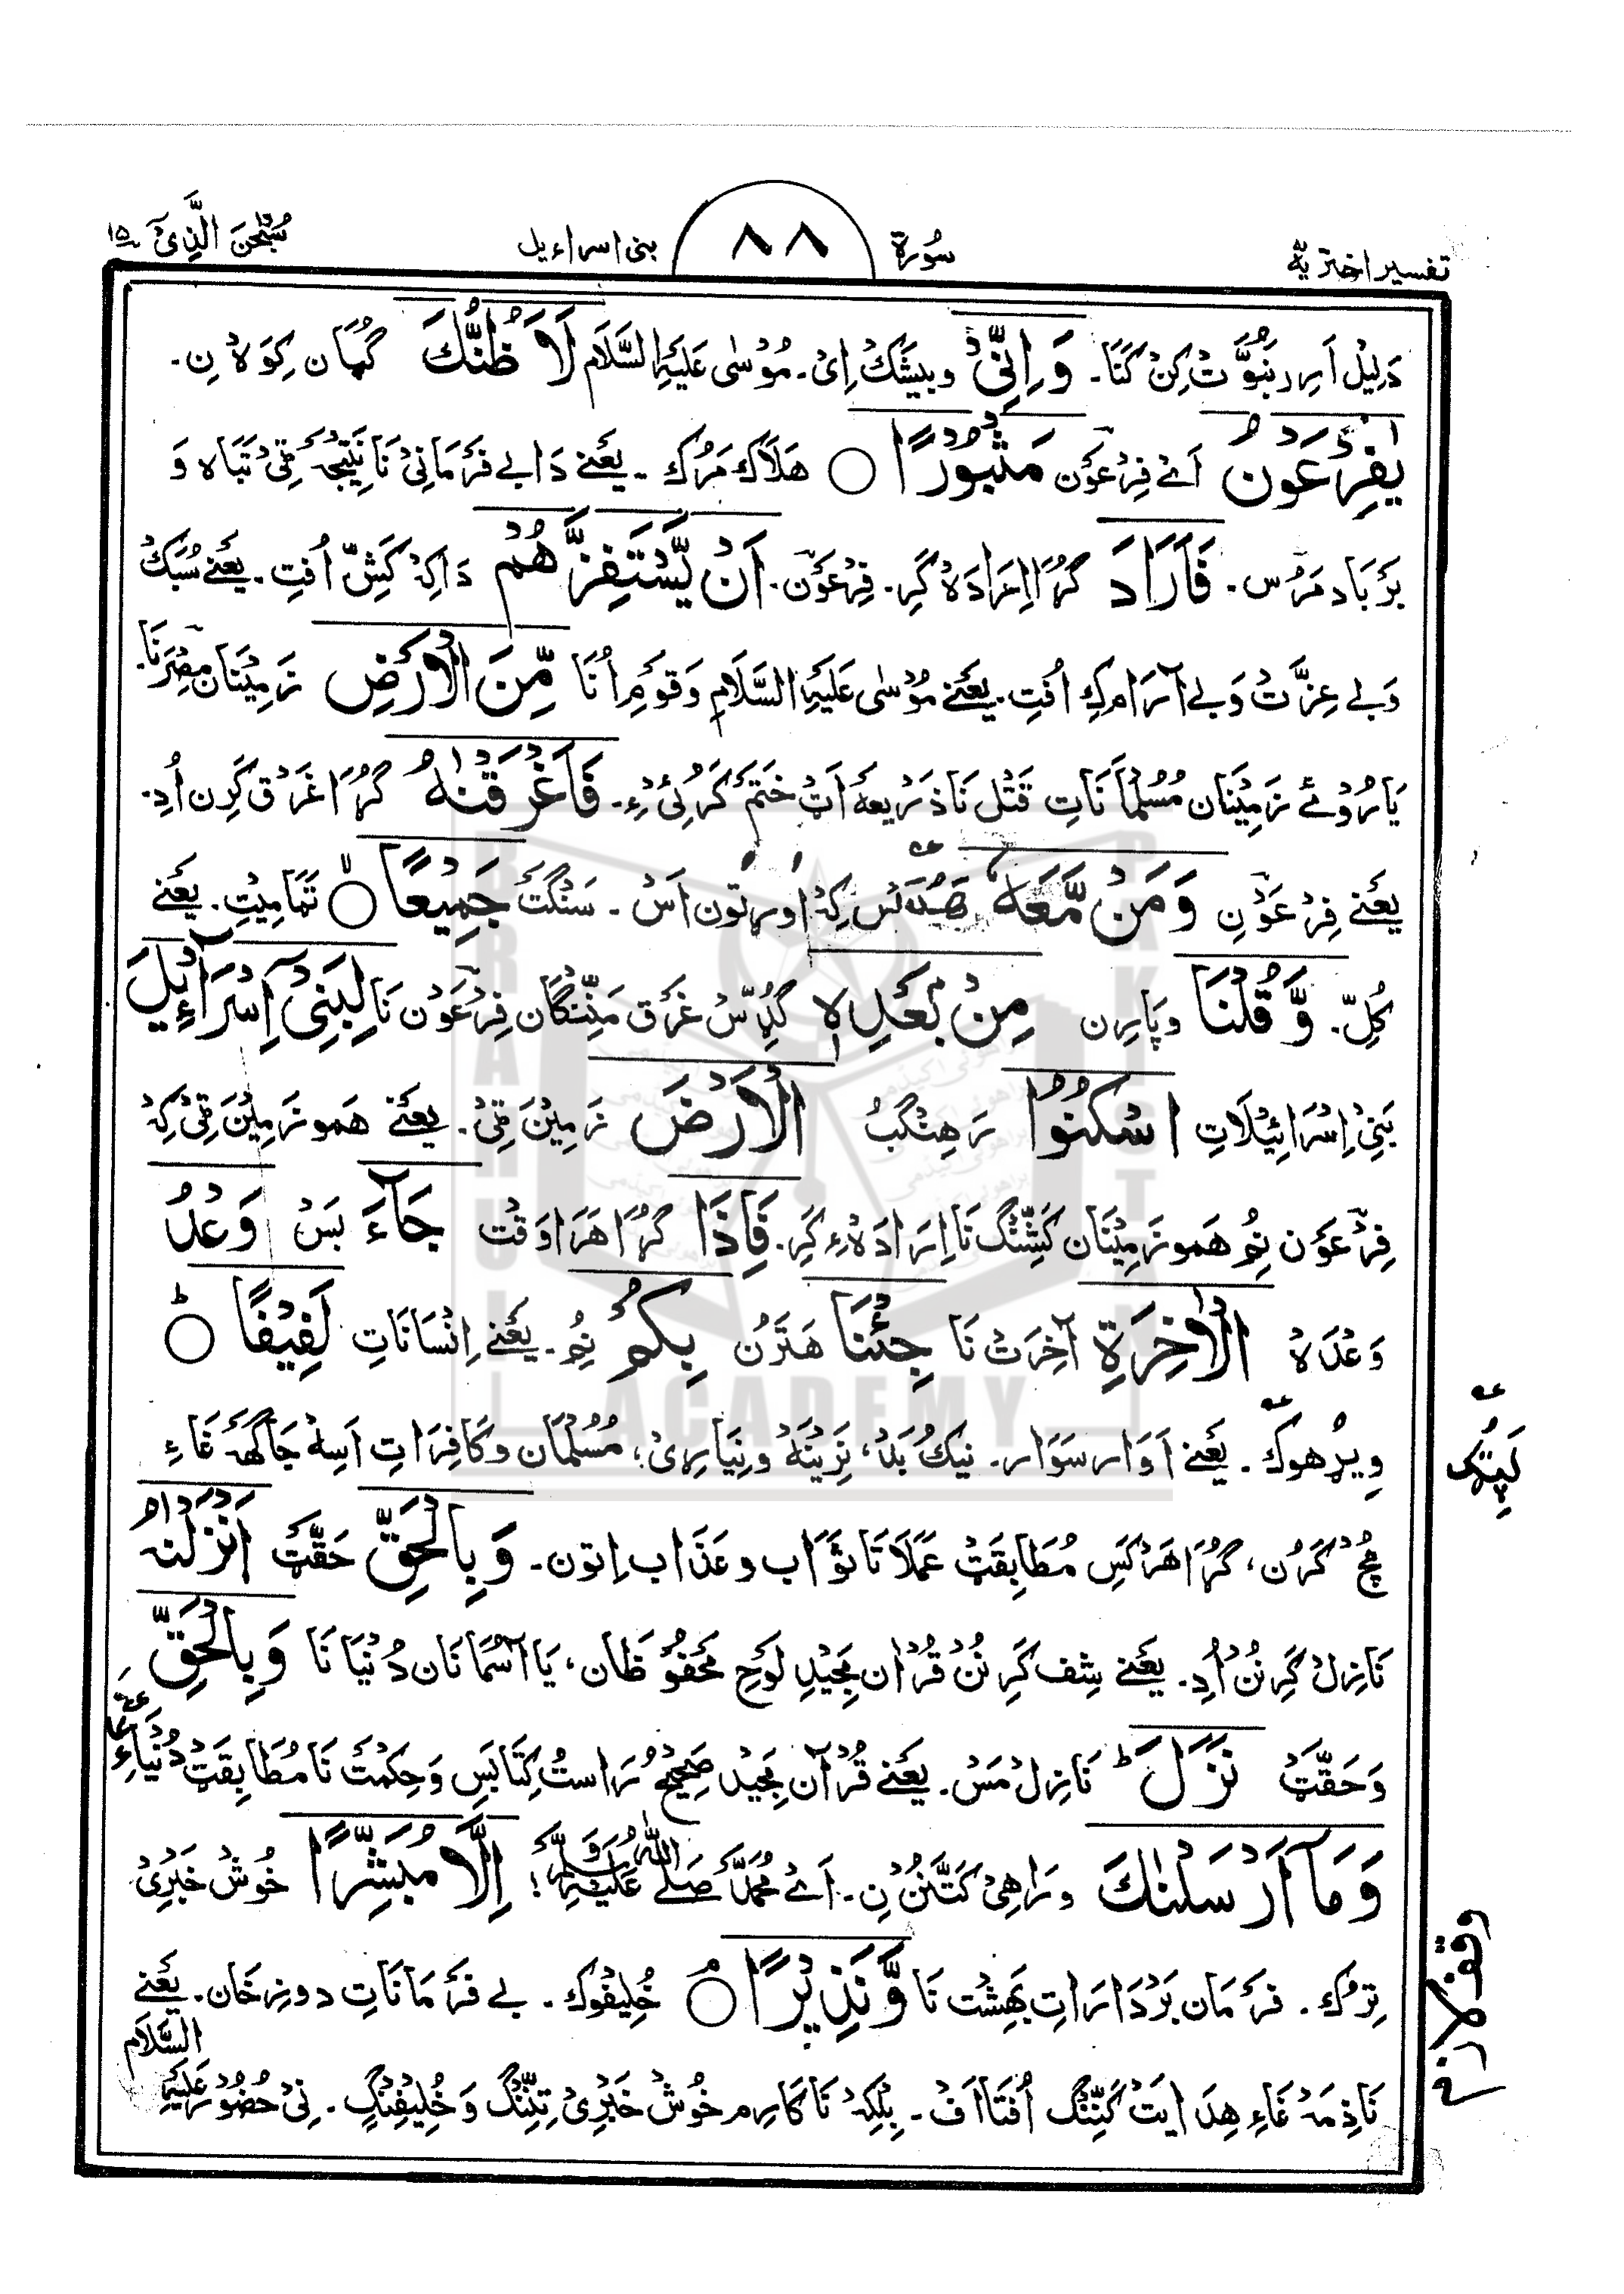 تفسیر اختریہ سُورۃ ۸۸ بنی اسراءیل سُبْحٰنَ الَّذِیْۤ ۱۵
دَلِیْل اَرِر نَبُوَّتْ کِنْ کَنَّا۔ وَ اِنِّیْ وبیشَّکْ اِیْ۔ مُوْسٰی عَلَیْہِ السَّلَام لَاَظُنُّکَ گُمَان کِوَہْ نِ۔
یٰفِرْعَوْنُ اَےْ فِرْعَوْن مَثْبُوْرًا ○ ھَلَاک مَرُک ۔ یَعْنے دَا بے فَرْمَانِیْ نَا نَتِیْجَہ ٹِیْ تَبَاہ وَ
بَرْبَاد مَرُس۔ فَاَرَادَ گُڑَا اِرَادَہْ کَرِ۔ فِرْعَوْن۔ اَنْ یَّسْتَفِزَّھُمْ دَاکِہْ کَشِّ اُفتِ۔ یَعْنے سُبَکْ
وَبے عِزَّتْ وَبے آرَام کِ اُفتِ۔ یَعْنے مُوْسٰی عَلَیْہِ السَّلَام وَقَوْمِ اُنَا مِّنَ الْاَرْضِ زَمِیْنَان مِصْرَنَا۔
یَا رُوْئے زَمِیْنَان مُسُلمَانَاتِ قَتْل نَا ذَرِیعہَ اَٹْ خَتَمْ کَرُئیْ ءِ۔ فَاَغْرَقْنٰہُ گُڑَا غَرْق کَرِن اُدِ۔
یَعْنے فِرْعَوْنِ وَمَنْ مَّعَہٗ ھَرَ کَس کِہْ اوڑتون اَسْ ۔ سَنْگَتْ جَمِیْعًا ○ تَمَامِیْتِ۔ یَعْنے
کُلِّ۔ وَّ قُلْنَا وپَارِن مِنْ بَعْدِہٖ گُڈِسّ غَرْق مَنِّنْگَان فِرْعَوْن نَا لِبَنِیْۤ اِسْرَآءِیْلَ
بَنِیْ اِسْرَائِیْلَاتِ اسْکُنُوا رَھِنْگَبْ الْاَرْضَ زَمِیْنَ ٹِیْ۔ یَعْنے ھَمو زَمِیْنَ ٹِیْ کِہْ
فِرْعَوْن نُم ھَمو زَمِیْنَان کَشِّنْگ نَا اِرَادَہْ ءِ کَرِ۔ فَاِذَا گُڑَا ھَرَا وَقْت جَآءَ بَسْ وَعْدُ
وَعْدَہْ الْاٰخِرَۃِ آخِرَتْ نَا جِئْنَا ھَتَرُن بِکُمْ نُم ۔ یَعْنے اِنْسَانَاتِ لَفِیْفًا ○ ؕ
وِیڑھوک ۔ یَعْنے اَوَار سَوَار۔ نیکْ بَدْ، نَرِیْنَہْ ونِیَارِیْ، مُسُلْمَان وکَافِرَاتِ اَسِہْ جَاگَھَہْ غَاءِ
لَپِیٹک
مُچْ کَرُن، گُڑَا ھَرْکَسِ مُطَابِقَتْ عَمَلَاتَا ثَوَاب و عَذَاب اِتون۔ وَ بِالْحَقِّ حَقَّتْ اَنْزَلْنٰہُ
نَازِل کَرِنُنْ اُدِ۔ یَعْنے شِف کَرِنُنْ قُرْان مَجِیْدِ لَوْحِ مَحْفُوْظَان، یَا آسْمَانَان دُنْیَا نَا وَبِالْحَقِّ
وَحَقَّتْ نَزَلَ ؕ نَازِل مَسْ۔ یَعْنے قُرْآن مَجِید صَحِیْح رَاسْتُ کِتَابَسِ وَحِکْمَتْ نَا مُطَابِقَتْ دُنْیَاءِ
وَمَاۤ اَرْسَلْنٰکَ ورَاھِیْ کَتَّنُنْ نِ۔ اَےْ مُحَمَّدْ صَلَّے اللہُ عَلَیْہِ وَسَلَّمَ! اِلَّا مُبَشِّرًا خُوشْ خَبَرِیْ
تِرُک۔ فَرْمَان بَرْدَارَاتِ بَھِشْت نَا وَّ نَذِیْرًا ○ خُلِیفُوک۔ بے فَرْمَانَاتِ دوزِخَان۔ یَعْنے
نَا ذِمَہْ غَاءِ ھِدَایَتْ کَنِّنْگ اُفتَا اَفْ۔ بَلْکِہْ نَا کَارِم خُوشْ خَبَرِیْ تِنِّنْگ وَخُلِیفِنْگِ۔ نِیْ حُضُوْر عَلَیْہِ السَّلَام
وقف لازم